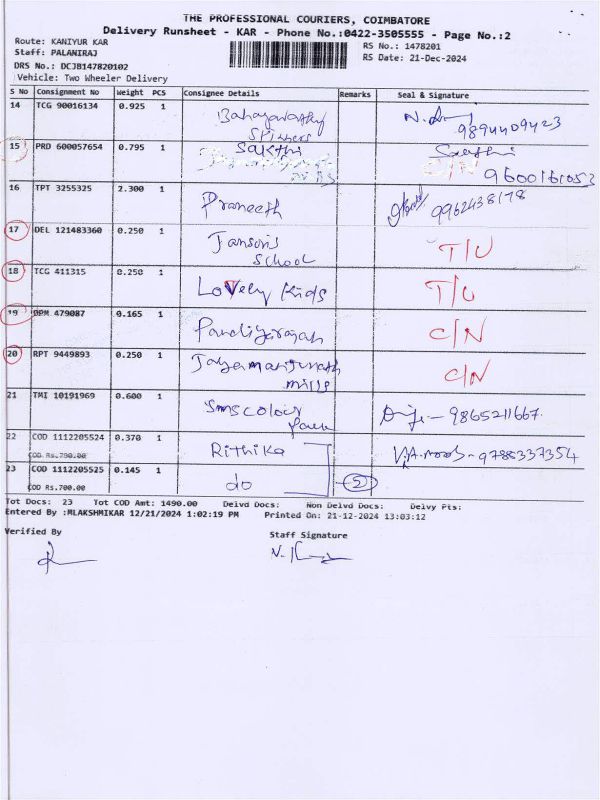 THE PROFESSIONAL COURIERS, COIMBATORE
Delivery Runsheet - KAR - Phone No.:0422-3505555 - Page No.:2
Route: KANIYUR KAR RS No.: 1478201
Staff: PALANIRAJ RS Date: 21-Dec-2024
DRS No.: DCJB147820102
Vehicle: Two Wheeler Delivery
S No Consignment No Weight PCS Consignee Details Remarks Seal & Signature
14 TCG 90016134 0.925 1 Bahagavathy
Spinners 9894409423
15 PRD 600057654 0.795 1 Sakthi Sakthi
C/N 9600161053
16 TPT 3255325 2.300 1 Praneeth 9962438178
17 DEL 121483360 0.250 1 Jansons
School T/U
18 TCG 411315 0.250 1 Lovely Kids T/U
19 479087 0.165 1 Pandiyarajan C/N
20 RPT 9449893 0.250 1 Jayamanjunath
mills C/N
21 TMI 10191969 0.600 1 SMS colour
9865211667
22 COD 1112205524 0.370 1 Rithika 9788337354
COD Rs.790.00
23 COD 1112205525 0.145 1 do 2
COD Rs.700.00
Tot Docs: 23 Tot COD Amt: 1490.00 Delvd Docs: Non Delvd Docs: Delvy Pts:
Entered By :MLAKSHMIKAR 12/21/2024 1:02:19 PM Printed On: 21-12-2024 13:03:12
Verified By Staff Signature